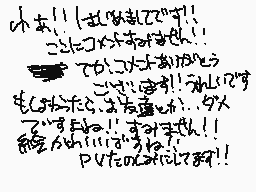 ゆあ!!はじめましてです!!
ここにコメントすみません!!
てかコメントありがとう
ございます!!うれしいです
もしよかったら、お友達とか…ダメ
ですよね!!すみません!!
絵かわいいですね!!
PVたのしみにしてます!!